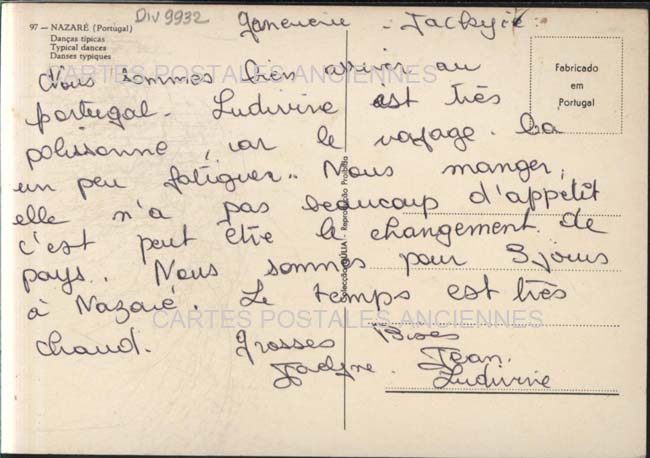 DIV 9932
97 — NAZARÉ (Portugal)
Danças típicas
Typical dances
Danses typiques
Fabricado
em
Portugal
Colecção DÚLIA - Reprodução Proibida
CARTES POSTALES ANCIENNES
CARTES POSTALES ANCIENNES
Nous sommes bien arriver au
portugal. Ludivine est très
polissonne, car le voyage la
un peu fatiguer.. Nous manger,
elle n'a pas beaucoup d'appétit
c'est peut être le changement de
pays.. Nous sommes pour 3 jours
à Nazaré. Le temps est très
chaud. Grosses Bises
Jean.
Ludivine